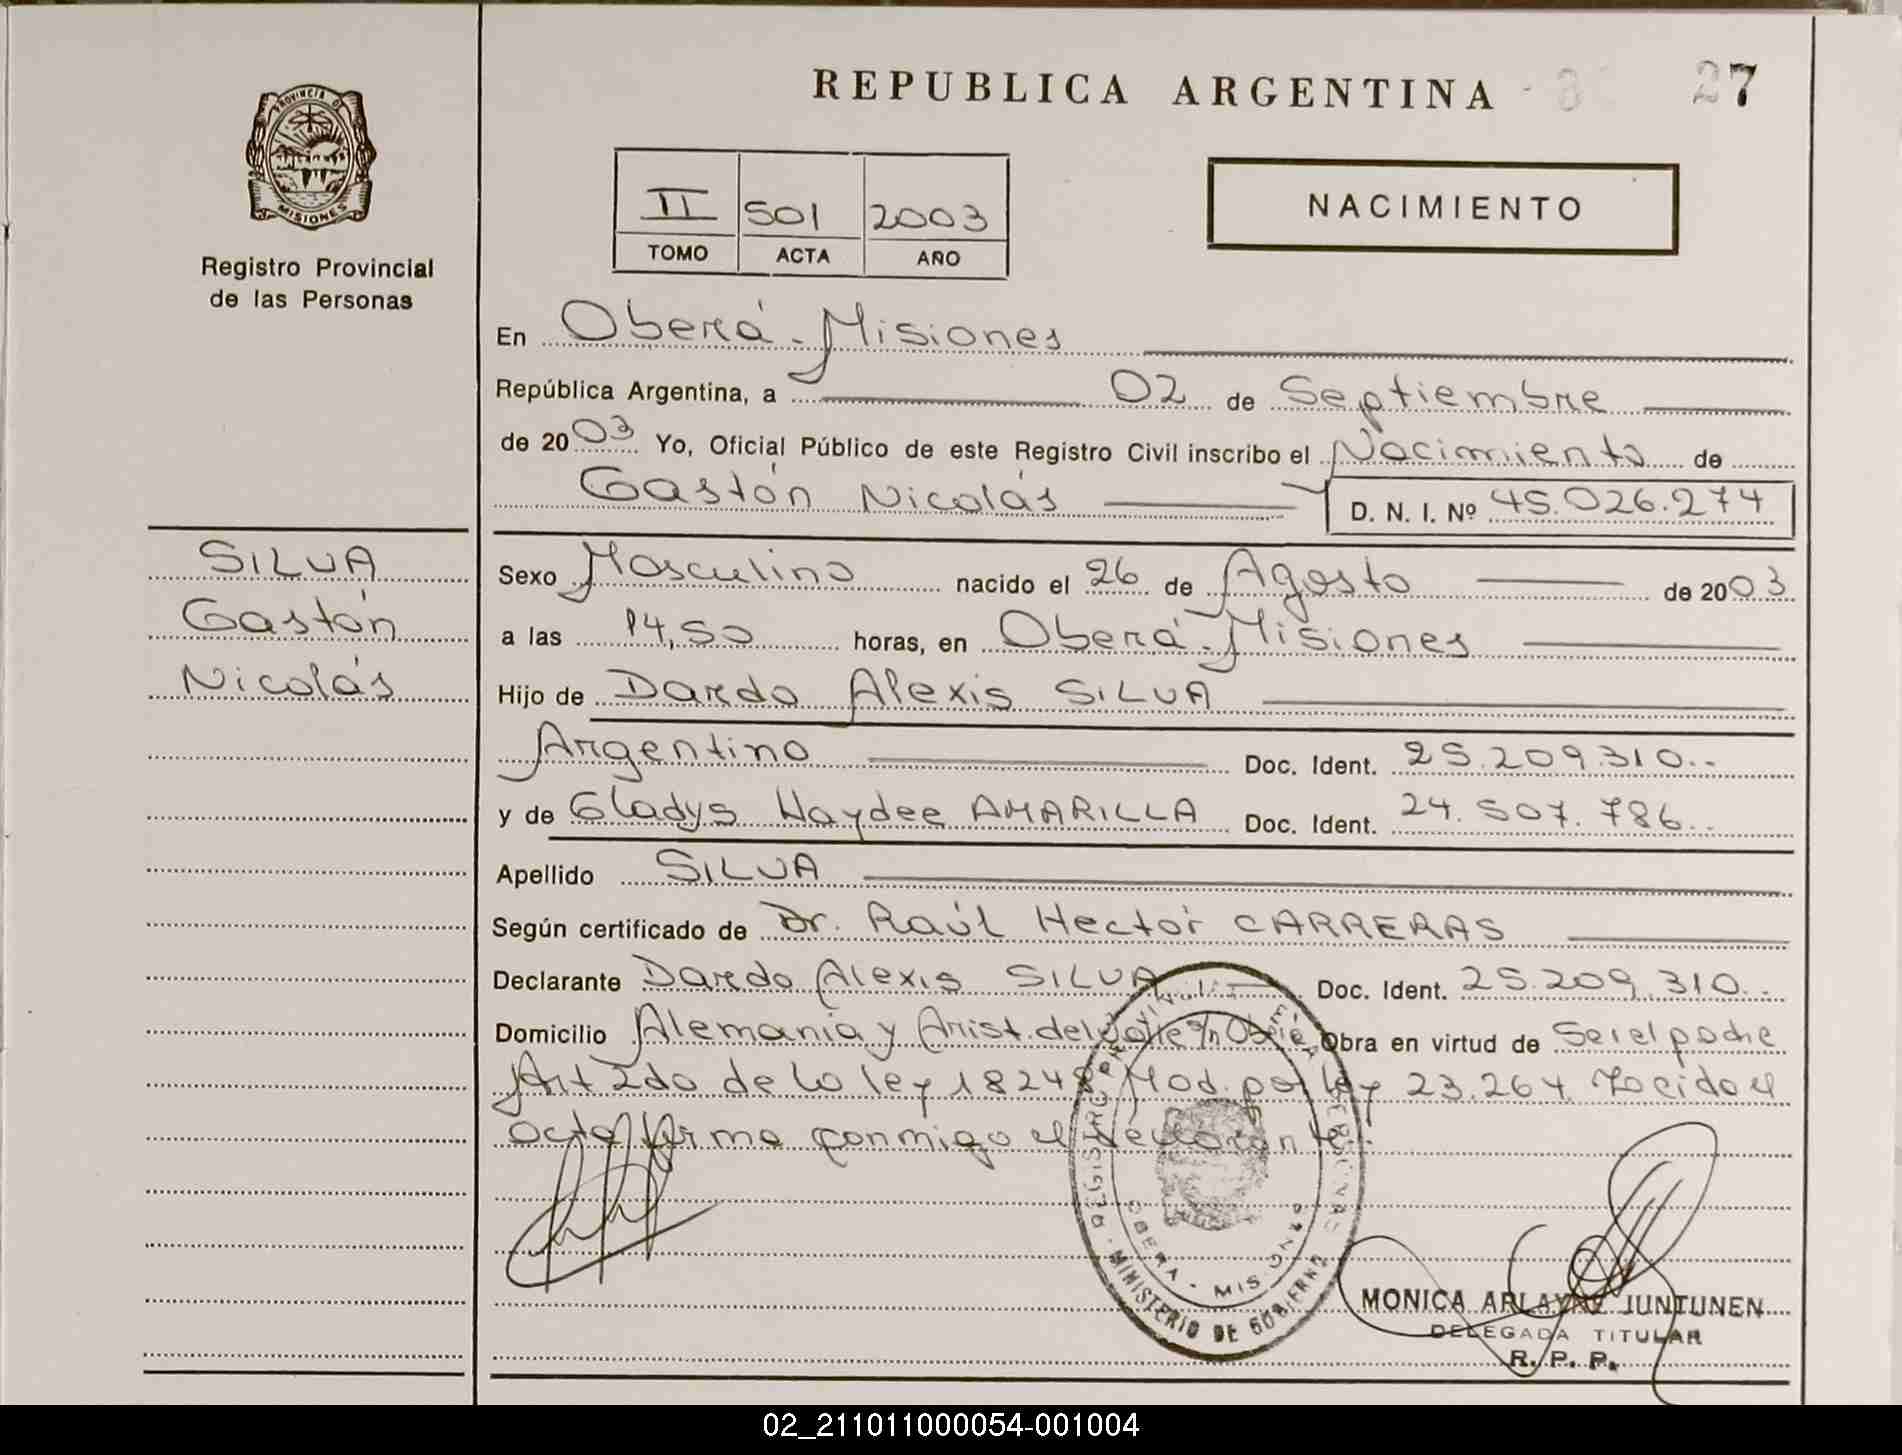 REPUBLICA ARGENTINA
27
PROVINCIA DE
MISIONES
Registro Provincial
de las Personas
II 501 2003
TOMO ACTA AÑO
NACIMIENTO
En Oberá - Misiones
República Argentina, a 02 de Septiembre
de 2003 Yo, Oficial Público de este Registro Civil inscribo el Nacimiento de
Gastón Nicolás D. N. I. Nº 45.026.274
SILVA
Gastón
Nicolás
Sexo Masculino nacido el 26 de Agosto de 2003
a las 14,50 horas, en Oberá - Misiones
Hijo de Dardo Alexis SILVA
Argentino Doc. Ident. 25.209.310..
y de Gladys Haydee AMARILLA Doc. Ident. 24.507.786..
Apellido SILVA
Según certificado de Dr. Raúl Hector CARRERAS
Declarante Dardo Alexis SILVA Doc. Ident. 25.209.310..
Domicilio Alemania y Arist. del Valle s/n Obra en virtud de Ser el padre
Art 2do de la ley 18248 Mod. por ley 23.264. Leída el
acta firma conmigo el declarante.
OBERA - MISIONES
MINISTERIO DE GOBIERNO
MONICA ARLAYNE JUNTUNEN
DELEGADA TITULAR
R. P. P.
02_211011000054-001004